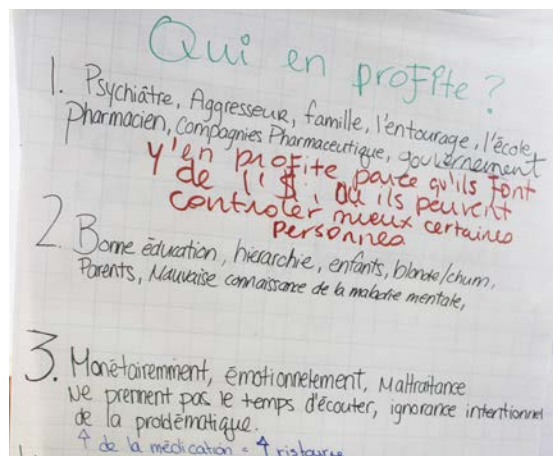 Qui en profite ?
1. Psychiâtre, Aggresseur, famille, l'entourage, l'école,
Pharmacien, Compagnies Pharmaceutique, gouvernement
Y'en profite parce qu'ils font
de l'$, ou ils peuvent
controler mieux certaines
personnes
2. Bonne éducation, hierarchie, enfants, blonde/chum,
Parents, Mauvaise connaissance de la maladie mentale,
3. Monétairemment, émotionnelement, Maltraitance
Ne prennent pas le temps d'écouter, ignorance intentionnel
de la problématique.
↑ de la médication = ↑ ristourne